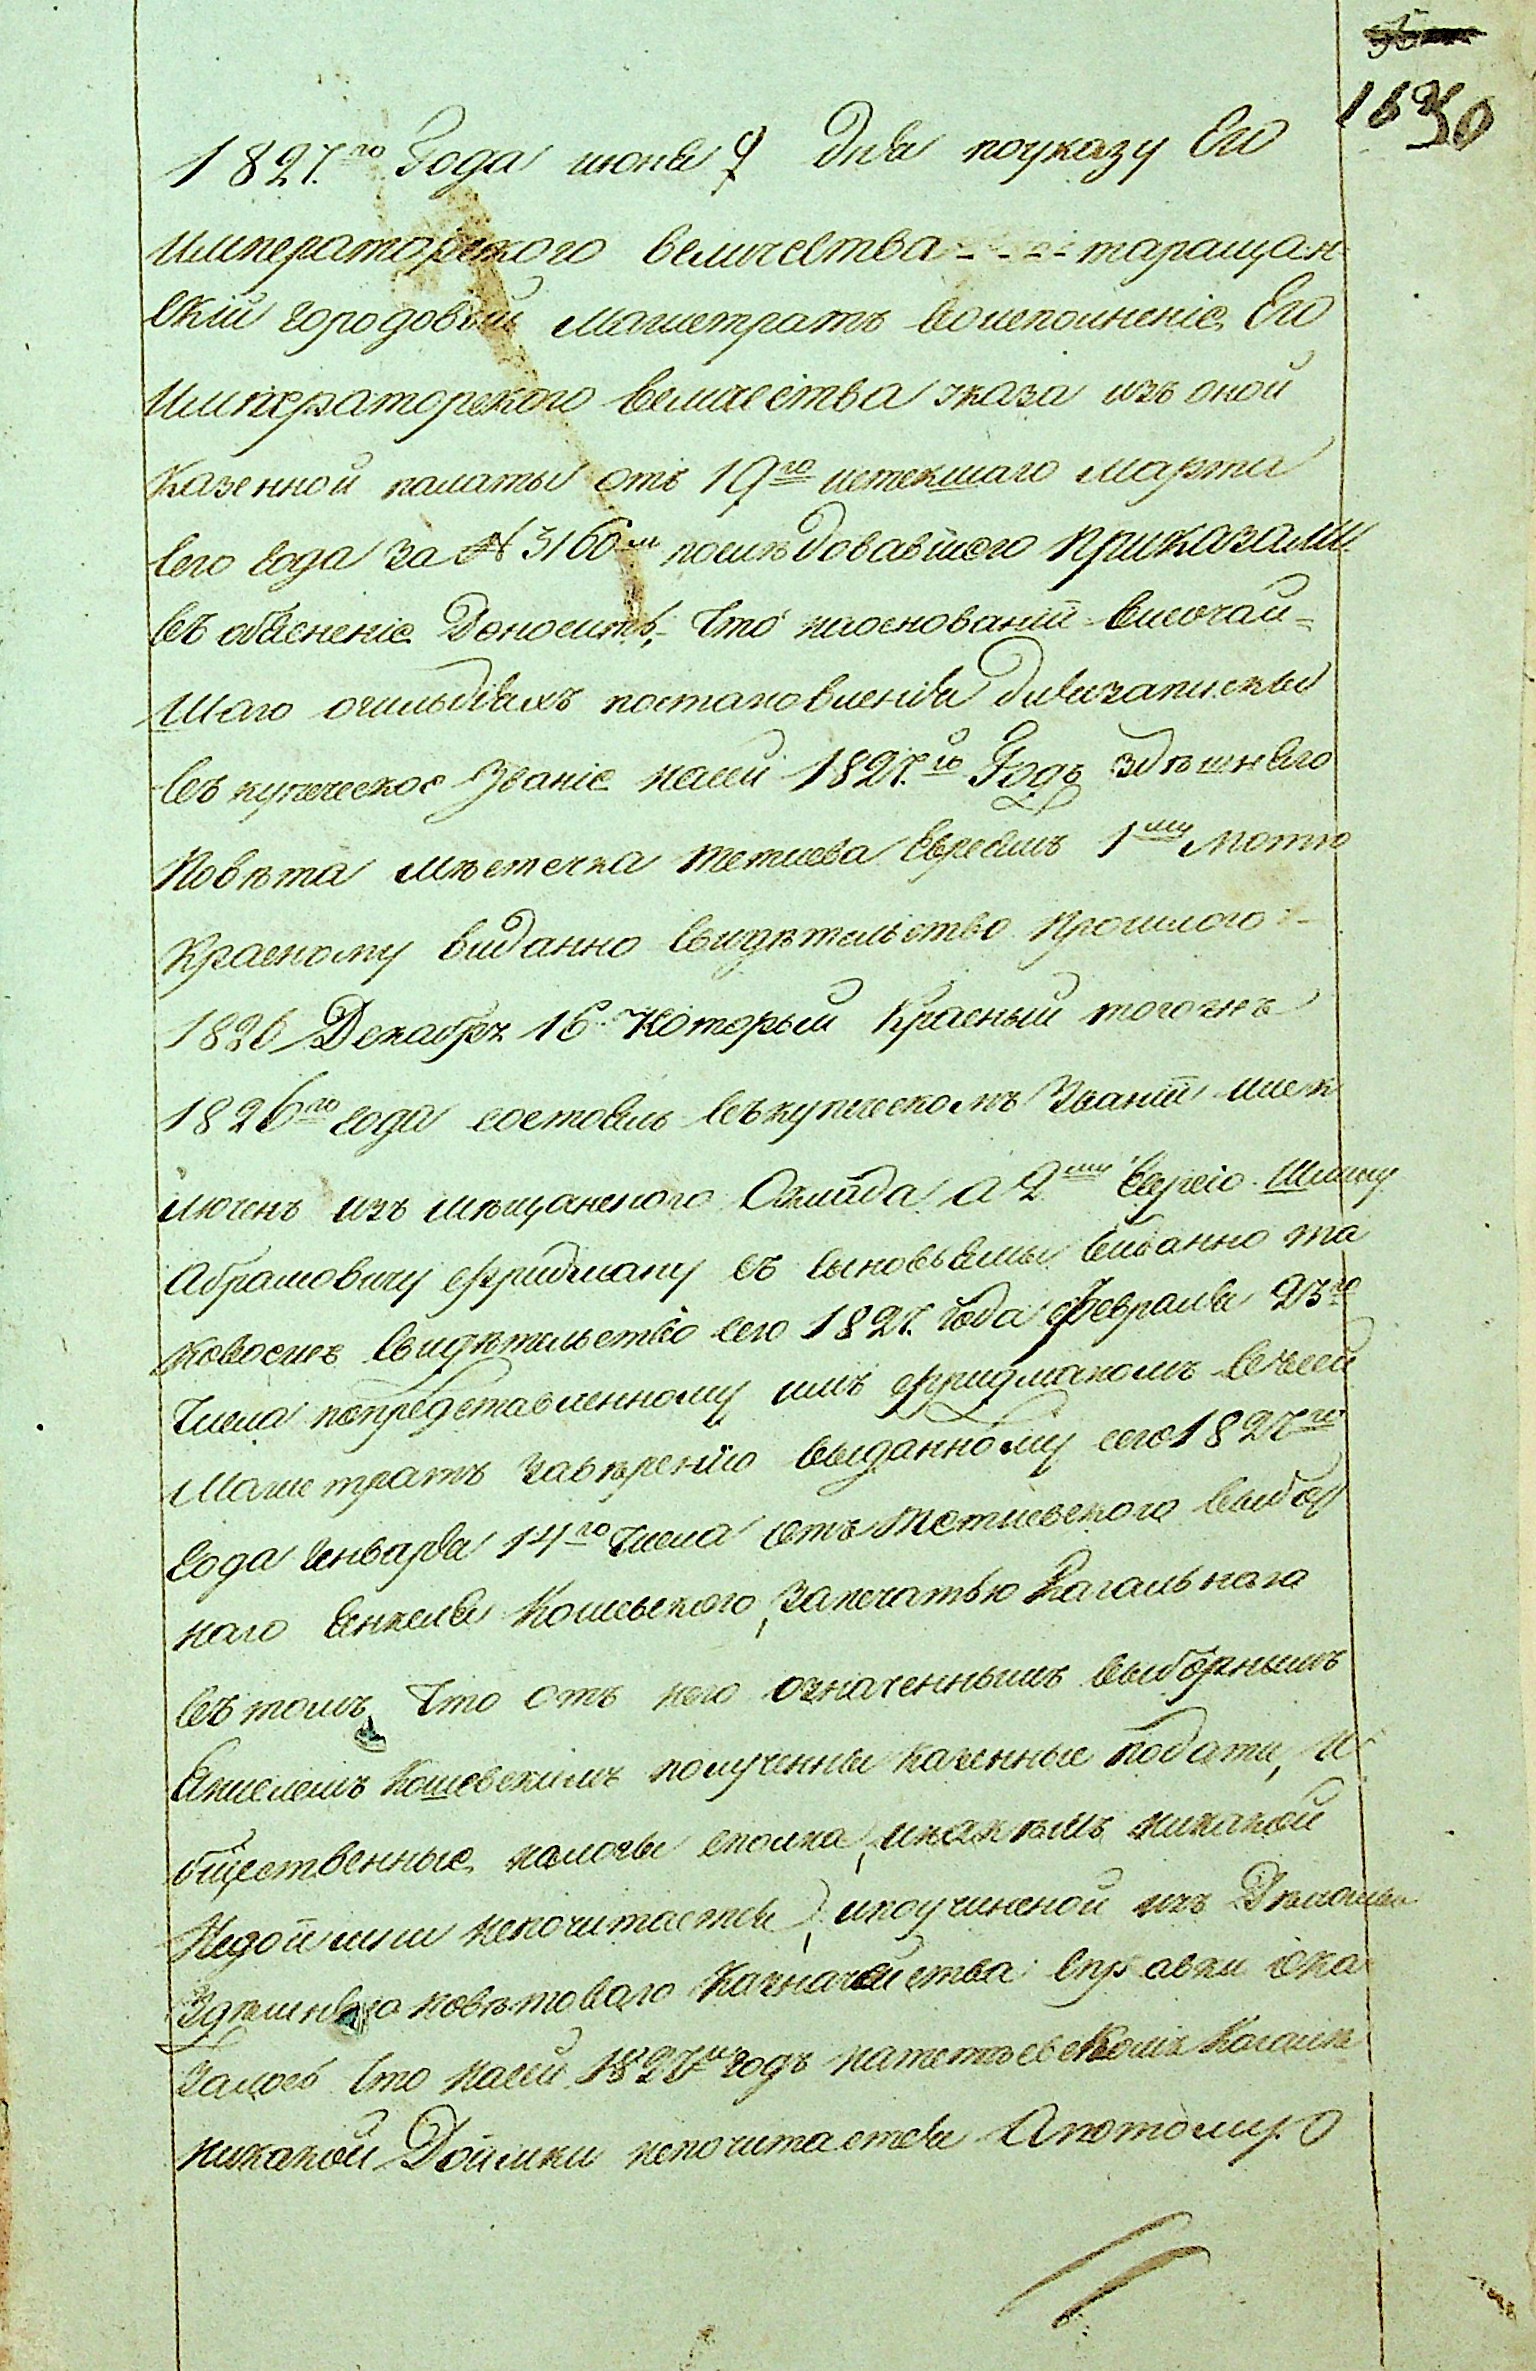 1630
1827.го Года июня 9 дня поуказу Его
Императорскаго величества - - - таращан-
скій городовый Магистратъ воисполненіе Его
Императорского величества указа изъ оной
казенной палаты отъ 19го истекшаго Марта
сего года за № 3160м последовавшого приказали
въ обясненіе Доноситъ, что наоснованіи височай=
шаго огильдіяхъ постановленія длязаписки
въ купеческое Званіе насей 1827.й Годъ здешнего
Повѣта мѣстечка Тетиева Евреямъ 1му Мотю
Красному виданно свидѣтельство прошлого -
1826 Декабря 16. который Красный тогожъ
1826го года состоялъ въкупеческомъ Званіи искл
люченъ изъ мѣщанского Оклада а 2му Еврею Шлиму
Абрамовичу Фридману съ сыновьямы виданно та
ковоежъ Свидѣтельство сего 1827. года февраля 23го
Числа попредставленному имъ Фридманомъ всѣсей
Магистратъ Завѣренію выданному сего 1827го
года Генваря 14го Числа отъ Тетиевского выбор
наго Янкеля Кошевского, Запечатью Кагальнаго
въ томъ Что отъ него означеннымъ выборнымъ
Янкелемъ Кошевскимъ полученны казенные подати, и
общественные налоги сполна, инакѣмъ никакой
Недоимки непочитается, ипоучиненой изъ Дѣламы
Здешнего повѣтоваго Казначейства справки ока
залось Что насей 1827й годъ натетіевскомъ Кагалѣ
никакой Доимки непочитается Апотому